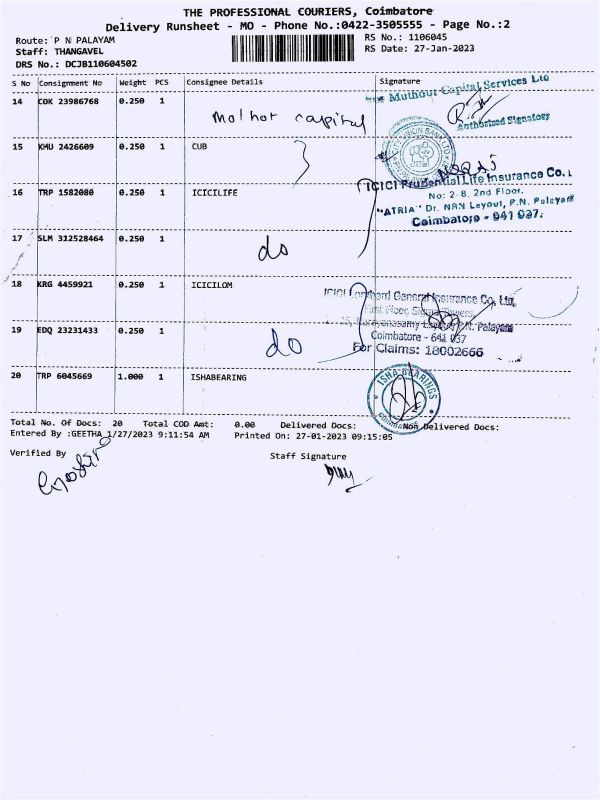 THE PROFESSIONAL COURIERS, Coimbatore
Delivery Runsheet - MO - Phone No.:0422-3505555 - Page No.:2
Route: P N PALAYAM RS No.: 1106045
Staff: THANGAVEL RS Date: 27-Jan-2023
DRS No.: DCJB110604502
S No Consignment No Weight PCS Consignee Details Signature
14 COK 23986768 0.250 1
Muthoot Capital Services Ltd
Authorised Signatory
15 KMU 2426609 0.250 1 CUB
16 TRP 1582080 0.250 1 ICICILIFE
ICICI Prudential Life Insurance Co. L
No: 2-B, 2nd Floor,
"ATRIA" Dr. NRN Layout, P.N. Palayam
Coimbatore - 641 037.
17 SLM 312528464 0.250 1 do
18 KRG 4459921 0.250 1 ICICILOM
ICICI Lombard General Insurance Co. Ltd.
19 EDQ 23231433 0.250 1 do
P.N. Palayam
Coimbatore - 641 037
For Claims: 18002666
20 TRP 6045669 1.000 1 ISHABEARING
ISHA BEARINGS
COIMBATORE
Total No. Of Docs: 20 Total COD Amt: 0.00 Delivered Docs: Non Delivered Docs:
Entered By :GEETHA 1/27/2023 9:11:54 AM Printed On: 27-01-2023 09:15:05
Verified By Staff Signature